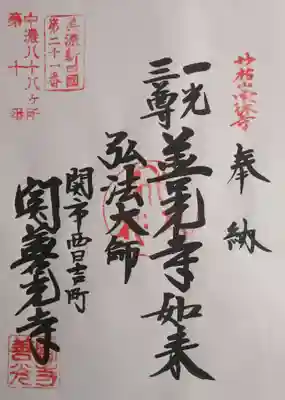 奉納
一光
三尊
善光寺如来
弘法大師
関市西日吉町
関善光寺
美濃新四国
第二十一番
中濃八十八ヶ所
第十番